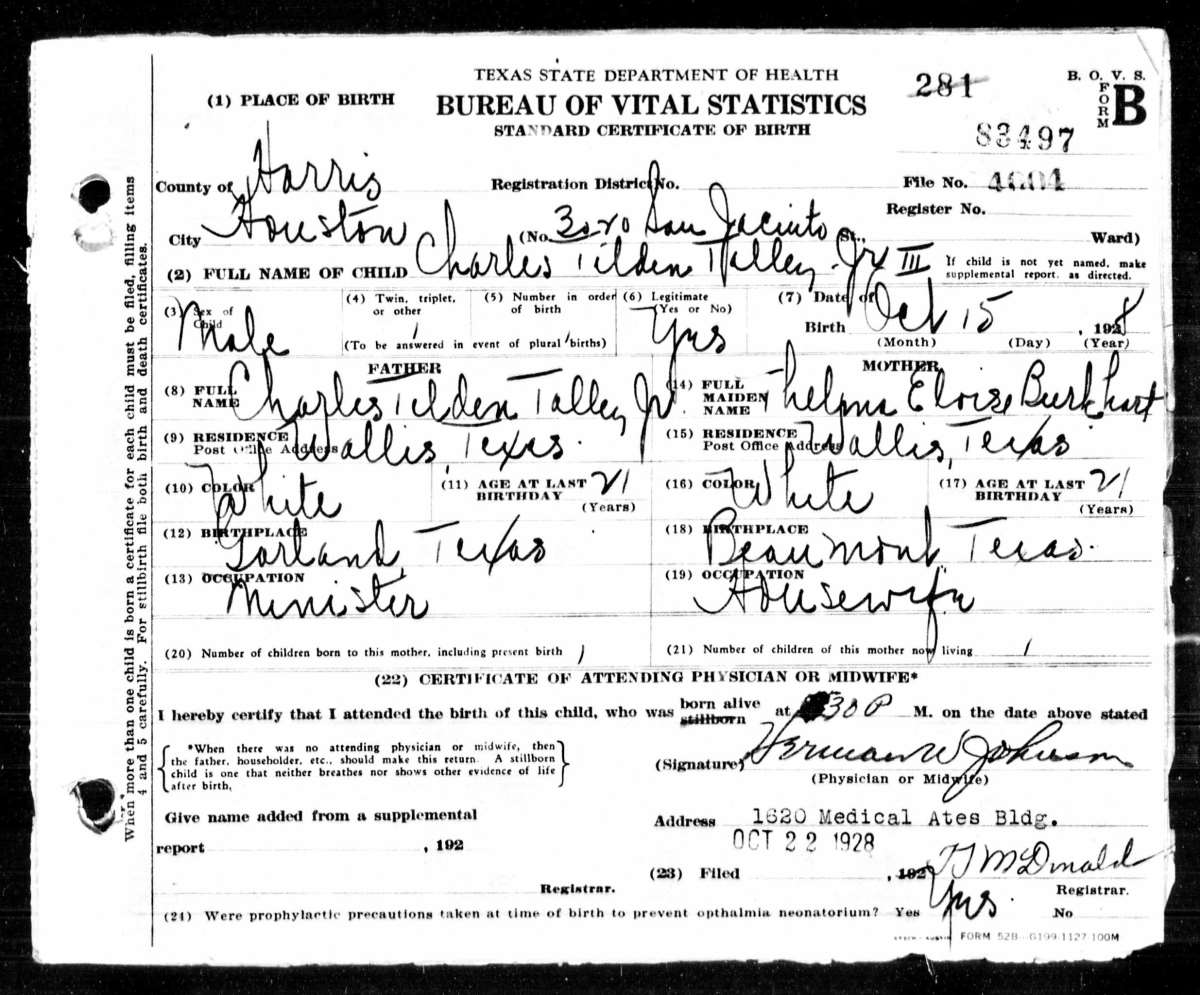 TEXAS STATE DEPARTMENT OF HEALTH
BUREAU OF VITAL STATISTICS
STANDARD CERTIFICATE OF BIRTH
281
B. O. V. S.
FORM B
83497
(1) PLACE OF BIRTH
County of Harris Registration District No. File No. 4604
Register No.
City Houston (No. 3020 San Jacinto St., Ward)
(2) FULL NAME OF CHILD Charles Tilden Talley Jr III
If child is not yet named, make
supplemental report, as directed.
(3) Sex of Child Male
(4) Twin, triplet, or other 1
(5) Number in order of birth 1
(To be answered in event of plural births)
(6) Legitimate (Yes or No) Yes
(7) Date of Birth Oct 15, 1928
(Month) (Day) (Year)
FATHER
(8) FULL NAME Charles Tilden Talley Jr
(9) RESIDENCE Post Office Address Wallis, Texas.
(10) COLOR White
(11) AGE AT LAST BIRTHDAY 21 (Years)
(12) BIRTHPLACE Garland, Texas
(13) OCCUPATION Minister
MOTHER
(14) FULL MAIDEN NAME Thelma Eloise Burkhart
(15) RESIDENCE Post Office Address Wallis, Texas
(16) COLOR White
(17) AGE AT LAST BIRTHDAY 21 (Years)
(18) BIRTHPLACE Beaumont, Texas.
(19) OCCUPATION Housewife
(20) Number of children born to this mother, including present birth 1
(21) Number of children of this mother now living 1
(22) CERTIFICATE OF ATTENDING PHYSICIAN OR MIDWIFE*
I hereby certify that I attended the birth of this child, who was born alive stillborn at 30 P M. on the date above stated
*When there was no attending physician or midwife, then
the father, householder, etc., should make this return. A stillborn
child is one that neither breathes nor shows other evidence of life
after birth.
(Signature) Herman W Johnson
(Physician or Midwife)
Give name added from a supplemental
report , 192
Registrar.
Address 1620 Medical Ates Bldg.
OCT 22 1928
(23) Filed , 192 T J McDonald
Registrar.
(24) Were prophylactic precautions taken at time of birth to prevent opthalmia neonatorium? Yes Yes. No
FORM 52B G199-1127-100M
When more than one child is born a certificate for each child must be filed, filling items
4 and 5 carefully. For stillbirth file both birth and death certificates.